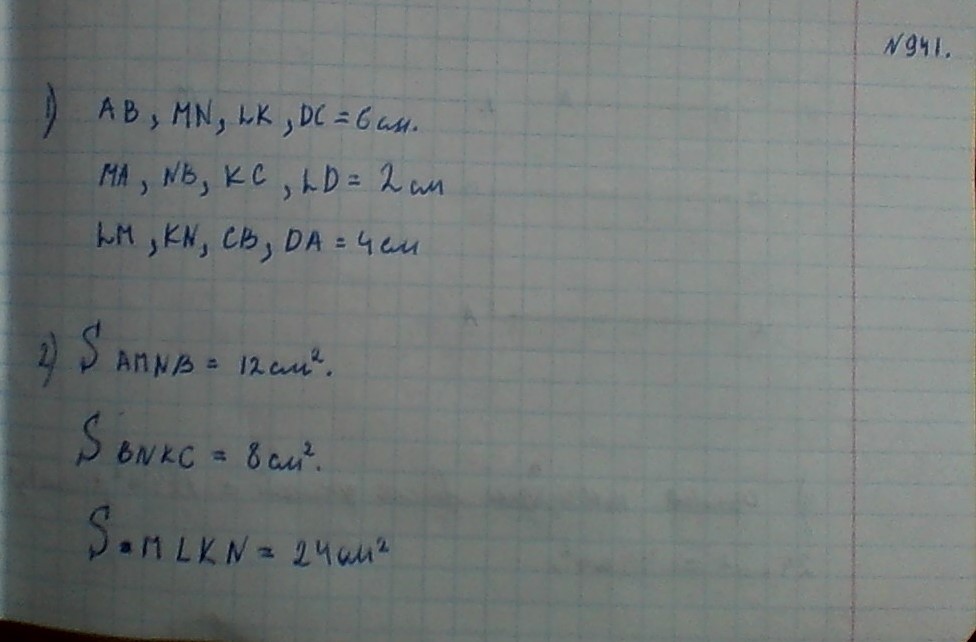 N941.
1) AB, MN, LK, DC = 6 см.
MA, NB, KC, LD = 2 см
LM, KN, CB, DA = 4 см
2) S AMNB = 12 см².
S BNKC = 8 см².
S MLKN = 24 см²